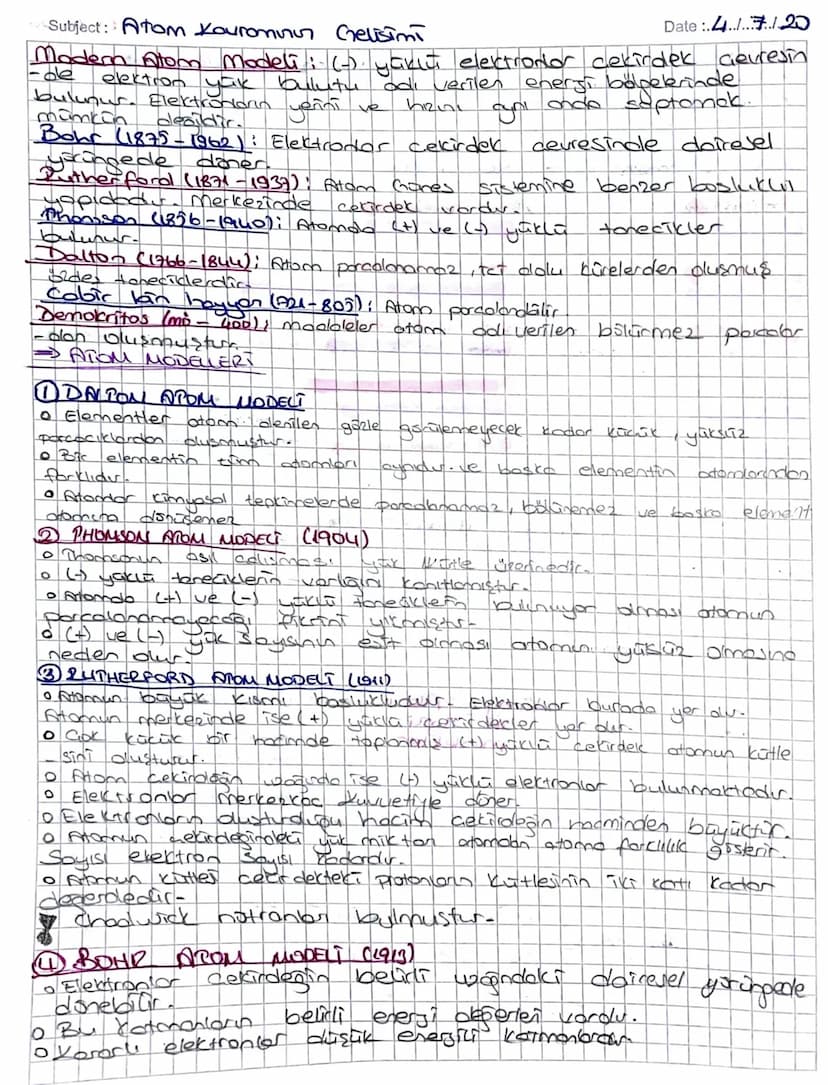 Subject: Atom Kavramının Gelişimi Date: 4./.7./20
Modern Atom Modeli: (-) yüklü elektronlar çekirdek çevresin
-de elektron yük bulutu adı verilen enerji bölgelerinde
bulunur. Elektronların yerini ve hızını aynı anda saptamak
mümkün değildir.
Bohr (1875-1962): Elektronlar çekirdek çevresinde dairesel
yörüngede döner.
Rutherford (1871-1937): Atom Güneş sistemine benzer boşluklu
yapıdadır. Merkezinde çekirdek vardır.
Thomson (1856-1940): Atomda (+) ve (-) yüklü tanecikler
bulunur.
Dalton (1766-1844): Atom parçalanamaz, içi dolu kürelerden oluşmuş
taneciklerdir.
Cabir bin hayyan (721-805): Atom parçalanabilir.
Demokritos (mö-400); maddeler atom adı verilen bölünmez parçalar
-dan oluşmuştur.
⇒ ATOM MODELLERİ
① DALTON ATOM MODELİ
o Elementler atom denilen gözle görülemeyecek kadar küçük, yüksüz
parçacıklardan oluşmuştur.
o Bir elementin tüm atomları aynıdır. ve başka elementin atomlarından
farklıdır.
o Atomlar kimyasal tepkimelerde parçalanamaz, bölünemez ve başka element
atomuna dönüşemez
② THOMSON ATOM MODELİ (1904)
o Thomsonun asıl çalışması yük kütle üzerinedir.
o (-) yüklü taneciklerin varlığını kanıtlamıştır.
o Atomda (+) ve (-) yüklü taneciklerin bulunuyor olması atomun
parçalanamayacağı fikrini yıkmıştır-
o (+) ve (-) yük sayısının eşit olması atomun yüksüz olmasına
neden olur.
③ RUTHERFORD ATOM MODELİ (1911)
o Atomun büyük kısmı boşlukludur. Elektronlar burada yer alır.
Atomun merkezinde ise (+) yüklü çekirdekler yer alır.
o Çok küçük bir hacimde toplanmış (+) yüklü çekirdek atomun kütle
-sini oluşturur.
o Atom çekirdeğin uzağında ise (-) yüklü elektronlar bulunmaktadır.
o Elektronlar merkezkaç kuvvetiyle döner.
o Elektronların oluşturduğu hacim çekirdeğin hacminden büyüktür.
o Atomun çekirdeğindeki yük miktarı atomdan atoma farklılık gösterir.
Sayısı elektron sayısı kadardır.
o Atomun kütlesi çekirdekteki protonların kütlesinin iki katı kadar
değerdedir-
Chadwick nötronları bulmuştur-
④ BOHR ATOM MODELİ (1913)
o Elektronlar çekirdeğin belirli uzağındaki dairesel yörüngede
dönebilir.
o Bu katmanların belirli enerji değerleri vardır.
o Kararlı elektronlar düşük enerjili